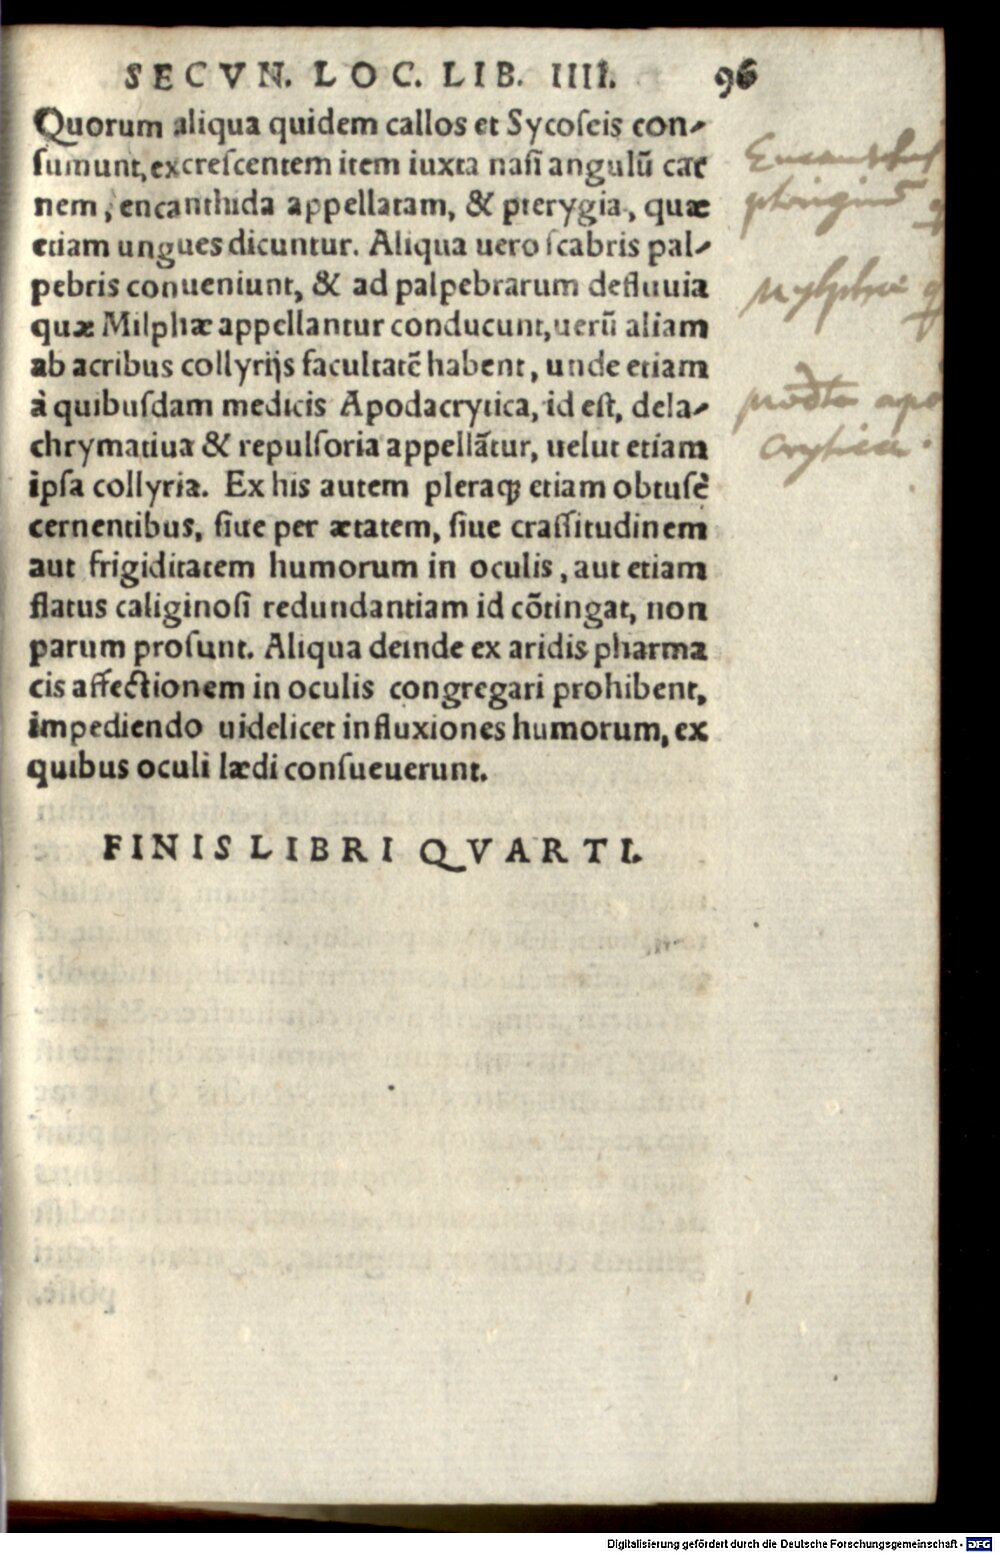 SECVN. LOC. LIB. IIII. 96
Quorum aliqua quidem callos et Sycoseis con-
ſumunt, excreſcentem item iuxta naſi angulũ car
nem, encanthida appellatam, & pterygia, quæ
etiam ungues dicuntur. Aliqua uero ſcabris pal-
pebris conueniunt, & ad palpebrarum defluuia
quæ Milphæ appellantur conducunt, uerũ aliam
ab acribus collyrijs facultatẽ habent, unde etiam
à quibuſdam medicis Apodacrytica, id eſt, dela-
chrymatiua & repulſoria appellãtur, uelut etiam
ipſa collyria. Ex his autem pleraqꝫ etiam obtuſè
cernentibus, ſiue per ætatem, ſiue craſſitudinem
aut frigiditatem humorum in oculis, aut etiam
flatus caliginoſi redundantiam id cõtingat, non
parum proſunt. Aliqua deinde ex aridis pharma
cis affectionem in oculis congregari prohibent,
impediendo uidelicet influxiones humorum, ex
quibus oculi lædi conſueuerunt.
FINIS LIBRI QVARTI.
Digitalisierung gefördert durch die Deutsche Forschungsgemeinschaft - DFG